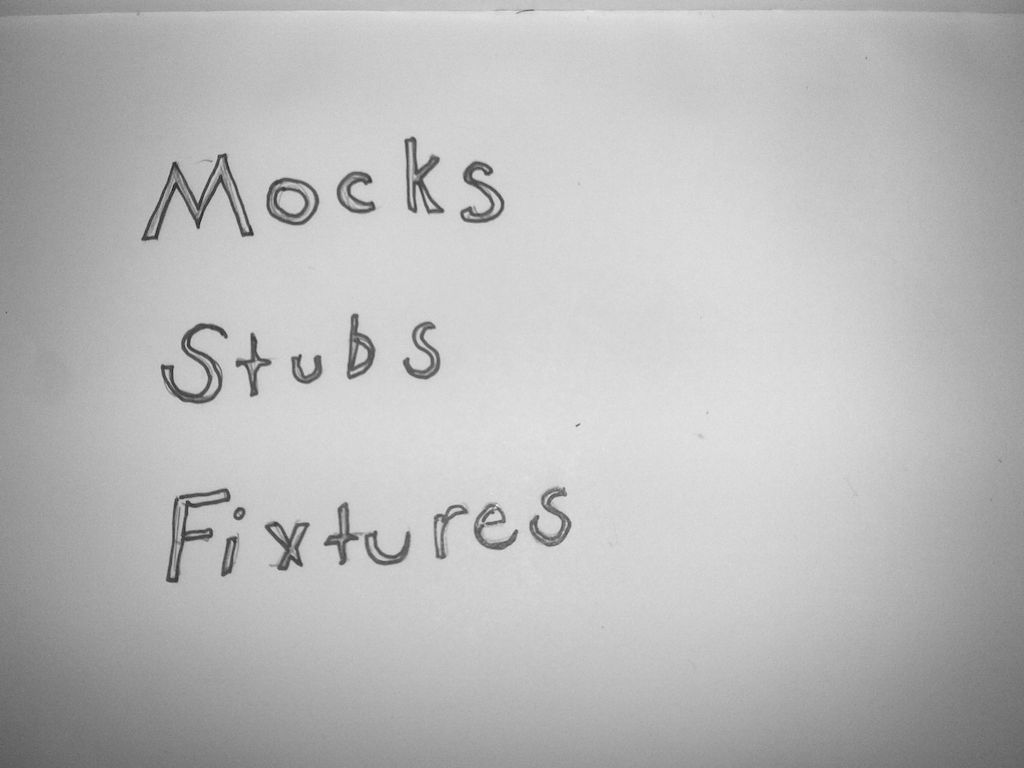 Mocks
Stubs
Fixtures